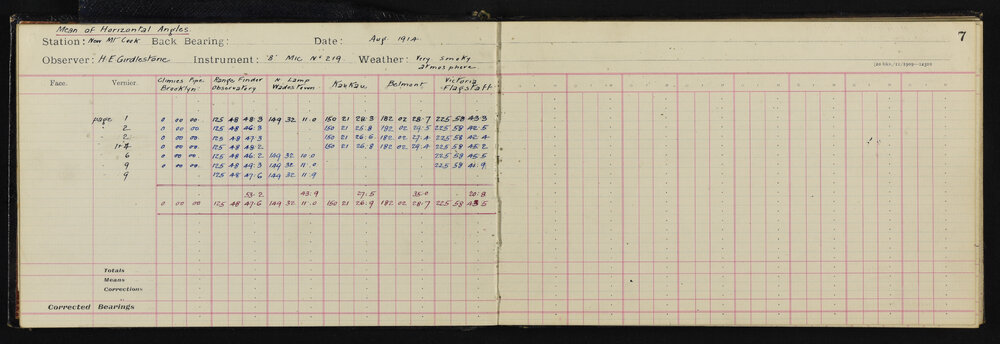 Mean of Horizontal Angles
Station: New Mt Cook Back Bearing: Date: Aug 1914 7
Observer: H.E Girdlestone Instrument: "B" Mic No 219 Weather: Very smoky atmosphere
Face. Vernier. Clinies Pipe. Brooklyn: Range Finder Observatory N Lamp Wadestown KauKau. Belmont. Victoria Flagstaff.
page 1 0 00 00. 125 48 48.3 149 32 11.0 150 21 28.3 182 02 28.7 225 58 43.3
" 2 0 00 00 125 48 46.3 150 21 25.8 182 02 29.5 225 58 42.5
" 2 0 00 00 125 48 47.3 150 21 26.6 182 02 27.4 225 58 42.4
1+4 0 00 00. 125 48 48.2 150 21 26.8 182 02 29.4 225 58 45.2
6 0 00 00 125 48 46.2 149 32 10.0 225 58 45.5
9 0 00 00. 125 48 49.3 149 32 11.0 225 58 41.9
9 125 48 47.6 149 32 11.9
53.2 43.9 27.5 35.0 20.8
0 00 00 125 48 47.6 149 32 11.0 150 21 26.9 182 02 28.7 225 58 43.5
Totals
Means
Corrections
Corrected Bearings